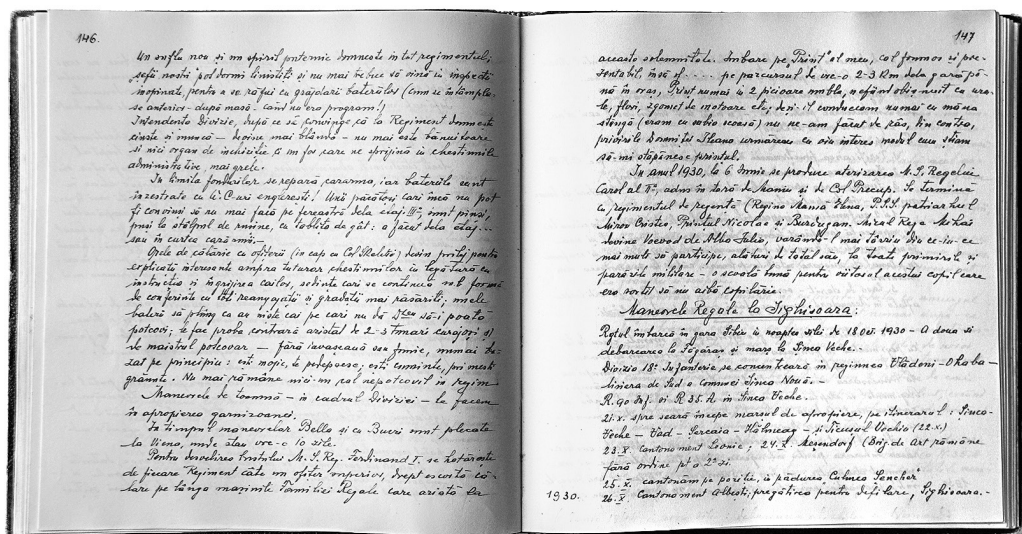 146.
Un suflu nou și un spirit puternic domnește în tot regimentul;
șefii noștri pot dormi liniștiți și nu mai trebue să vină în inspecții
inopinate, pentru a se răfui cu grăjdarii bateriilor (cum se întâmpla-
se anterior - după masă - când nu era program!)
Intendența Diviziei, după ce se convinge că la Regiment domnește
cinste și muncă - devine mai blândă - nu mai este bănuitoare
și nici organ de inchiziție ci un for care ne sprijină în chestiunile
administrative mai grele.
În limita fondurilor se repară cazarma, iar bateriile sunt
înzestrate cu W.C-uri englezești! Unii păcătoși cari încă nu pot
fi convinși să nu mai facă pe fereastră dela etaj sunt prinși,
puși la stâlpul de rușine, cu tăblița de gât: a făcut dela etaj...
sau în curtea cazărmii.-
Orele de călărie cu ofițerii (în cap cu Col. ) devin prilej pentru
explicații interesante asupra tuturor chestiunilor în legătură cu
instrucția și îngrijirea cailor, ședințe cari se continuă sub formă
de conferințe cu toți reangajații și gradații mai răsăriți; unele
baterii se plâng că ar avea cai pe cari nu să-i poată
potcovi; le fac proba contrară asistat de 2-3 tunari curajoși și
de maistrul potcovar - fără iavașea sau funie, numai ba-
zat pe principiu: ești mojic, te pedepsesc; ești cuminte, primești
grăunțe. Nu mai rămâne nici-un cal nepotcovit în regim
Manevrele de toamnă - în cadrul Diviziei - le facem
în apropierea garnizoanei.
În timpul manevrelor Bella și cu Bucri sunt plecate
la Viena, unde stau vre-o 10 zile.
Pentru desvelirea bustului M. S. Reg. Ferdinand I. se hotărăște
de fiecare Regiment câte un ofițer superior, drept escortă că-
lare pe lângă mașinile Familiei Regale care asistă la
147
această solemnitate. Îmbarc pe "Prinț" al meu, cal frumos și pre-
zentabil, însă pe parcursul de vre-o 2-3 Km dela gară pâ-
nă în oraș, Prinț numai în 2 picioare umbla, nefiind obișnuit cu ura-
le, flori, zgomot de motoare etc, deși-l conduceam numai cu mâna
stângă (eram cu sabia scoasă) nu ne-am făcut de râs, din contra,
privirile Domniței Ileana urmăreau cu viu interes modul cum știam
să-mi stăpânesc prințul.
În anul 1930, la 6 Iunie se produce aterizarea M. S. Regelui
Carol al IIlea, adus în țară de Maniu și de Col Precup. Se termină
cu regimentul de regență (Regina Mama Elena, P.S.S. patriarhul
Miron Cristea, Prințul Nicolae și Buzdugan. Micul Rege Mihai
devine Voevod de Alba Iulia, văzându-l mai târziu din ce-în-ce
mai mult să participe, alături de tatăl său, la toate primirile și
parăzile militare - o școală bună pentru viitorul acestui copil care
era sortit să nu aibă copilărie.
Manevrele Regale la Sighișoara:
Regtul îmbarcă în gara Sibiu în noaptea zilei de 18 Oct. 1930 - A doua zi
debarcarea la Făgăraș și marș la Șinca Veche.
Divizia 18a Infanterie se concentrează în regiunea Vlădeni - Ohaba -
liziera de Sud a comunei Șinca Nouă. -
R. 90 Inf. și R 35. A în Șinca Veche.
21.X. spre seară începe marșul de apropiere, pe itinerarul: Șinca-
Veche - Vad - Șercaia - Hălmeag - și Ticușul Vechiu (22.X.)
23.X. cantonament Lovnic; 24.X. Mesendorf (Brig de Art rămâne
fără ordine pt a 2a zi.
25.X. cantonam pe poziție, în pădurea Culmea
1930.
26.X. Cantonament Albești, pregătirea pentru defilare, Sighișoara.-